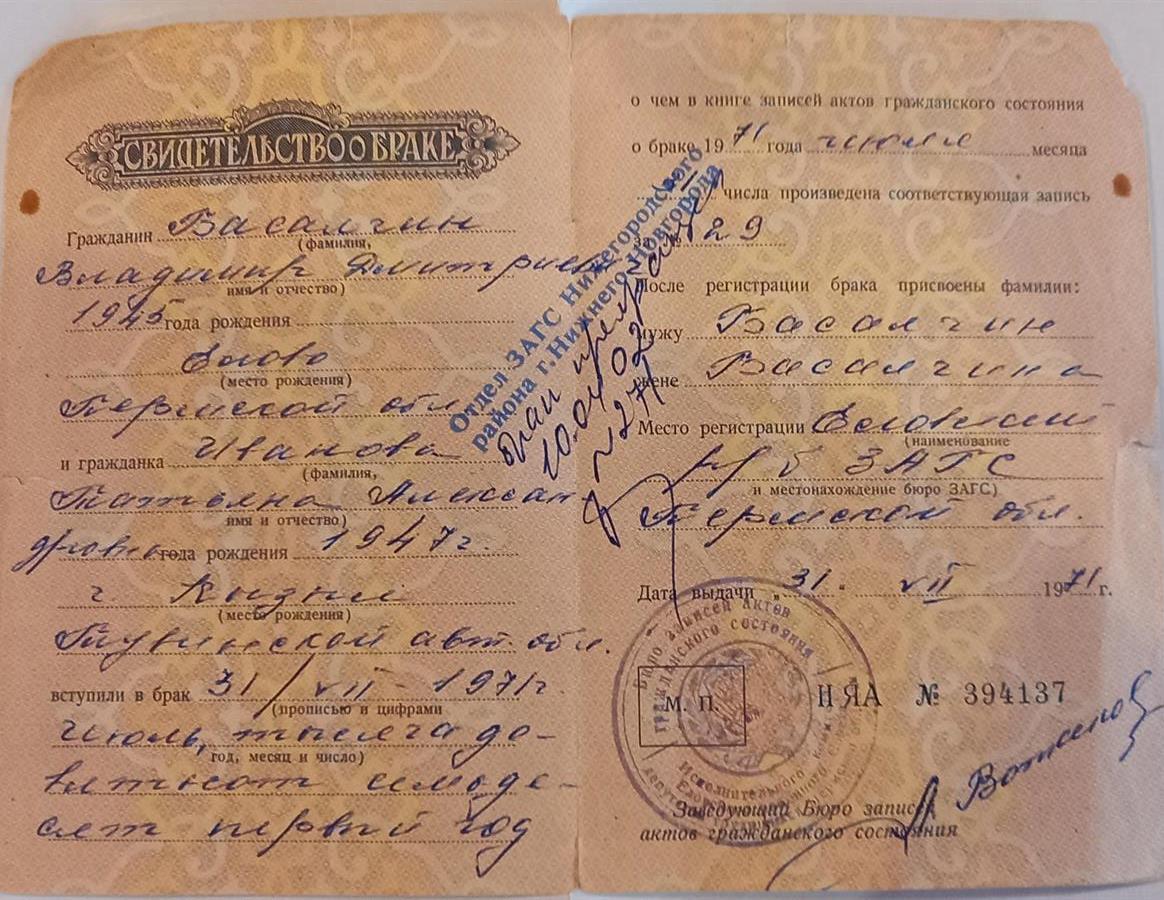 СВИДЕТЕЛЬСТВО О БРАКЕ
Гражданин Васалчин
(фамилия,
Владимир Дмитриев
имя и отчество)
1945 года рождения
Елово
(место рождения)
Пермской обл.
и гражданка Иванова
(фамилия,
Татьяна Алексан-
имя и отчество)
дровна года рождения 1947 г.
г. Кызыл
(место рождения)
Тувинской авт. обл.
вступили в брак 31/VII - 1971 г.
(прописью и цифрами
Июль, тысяча де-
год, месяц и число)
вятьсот семьде-
сят первый год
о чем в книге записей актов гражданского состояния
о браке 1971 года июля месяца
числа произведена соответствующая запись
за № 29
После регистрации брака присвоены фамилии:
мужу Васалчин
жене Васалчина
Место регистрации Еловский
(наименование
р/б ЗАГС
и местонахождение бюро ЗАГС)
Пермской обл.
Дата выдачи „31" VII 1971 г.
М. П.
II ЯА № 394137
Заведующий Бюро записей
актов гражданского состояния
Отдел ЗАГС Нижегородского
района г. Нижнего Новгорода
брак прекращен
10.04.02
№ 271
Бюро записей актов
гражданского состояния
Исполнительного